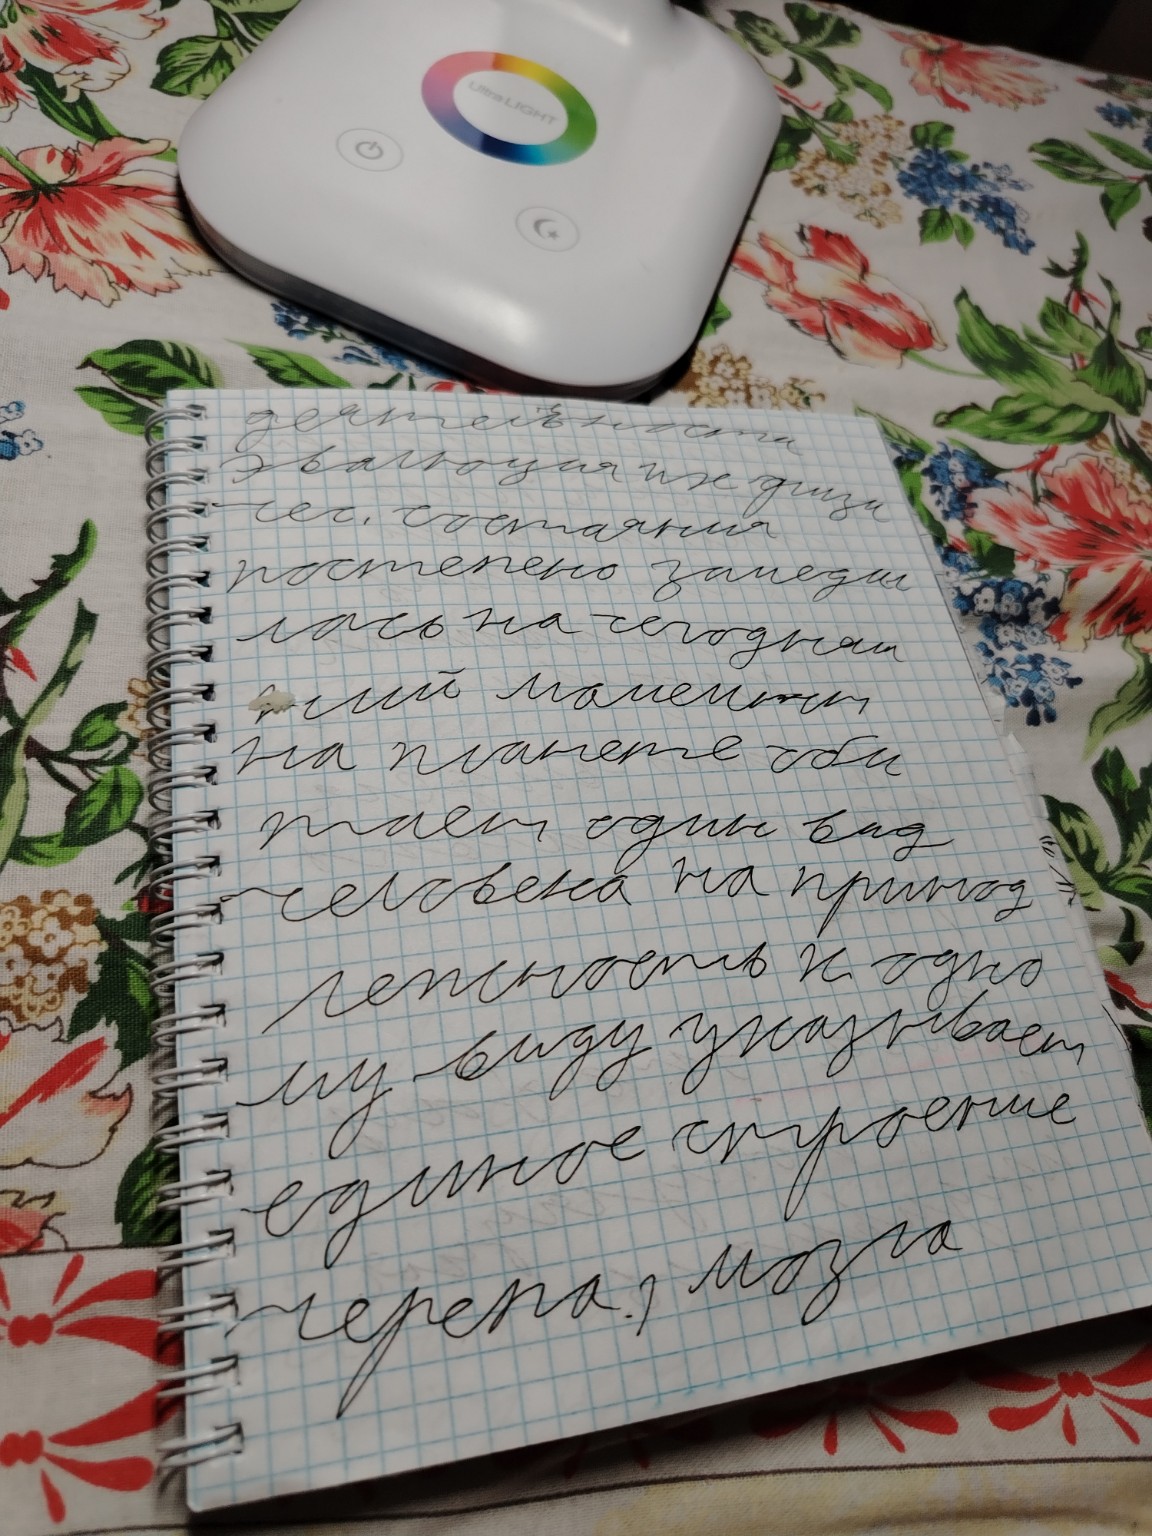 UltraLIGHT
деятельности
эвалюция их физи
чес. состаяния
постепено замедли
лась на сегодняш
ний момент
на планете оби
тает один вид
человека на принод
лежность к одно
му виду указывает
единое строение
черепа, мозга